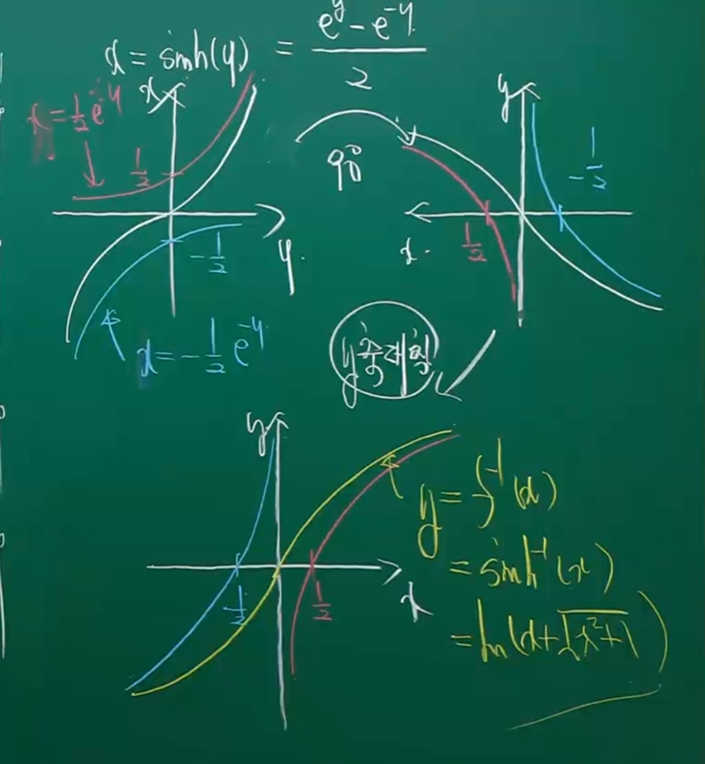 x = sinh(y) = (e^y - e^-y) / 2
x
x = 1/2 e^-y
1/2
y
-1/2
x = -1/2 e^-y
90°
y
-1/2
x
1/2
y축대칭
y
-1/2
1/2
x
y = f^-1(x)
= sinh^-1(x)
= ln(x+√x²+1)